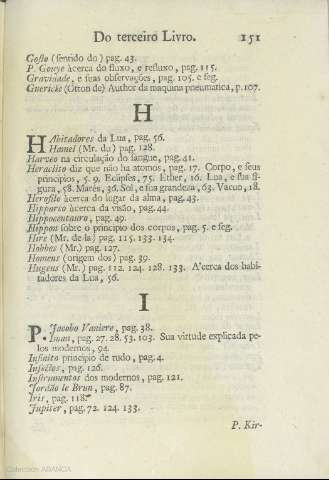 Do terceiro Livro. 151
Gosto (sentido do) pag. 43.
P. Gouye àcerca do fluxo, e refluxo, pag. 115.
Gravidade, e suas observações, pag. 105. e seg.
Guericke (Otton de) Author da maquina pneumatica, p. 107.
H
HAbitadores da Lua, pag. 56.
Hamel (Mr. du) pag. 128.
Harveo na circulação do sangue, pag. 41.
Heraclito diz que não ha atomos, pag. 17. Corpo, e seus
principios, 5. 9. Eclipses, 75. Ether, 16. Lua, e sua fi-
gura, 58. Marés, 36. Sol, e sua grandeza, 63. Vacuo, 18.
Herofile àcerca do lugar da alma, pag. 43.
Hipparco àcerca da visão, pag. 44.
Hippocentauro, pag. 49.
Hippon sobre o principio dos corpos, pag. 5. e seg.
Hire (Mr. de la) pag. 115. 133. 134.
Hobbes (Mr.) pag. 127.
Homens (origem dos) pag. 39.
Hugens (Mr.) pag. 112. 124. 128. 133. A'cerca dos habi-
tadores da Lua, 56.
I
P. Jacobo Vaniere, pag. 38.
Iman, pag. 27. 28. 53. 103. Sua virtude explicada pe-
los modernos, 94.
Infinito principio de tudo, pag. 4.
Insectos, pag. 126.
Instrumentos dos modernos, pag. 121.
Jordão le Brun, pag. 87.
Iris, pag. 118.
Jupiter, pag. 72. 124. 133.
P. Kir-
Colección ABANCA